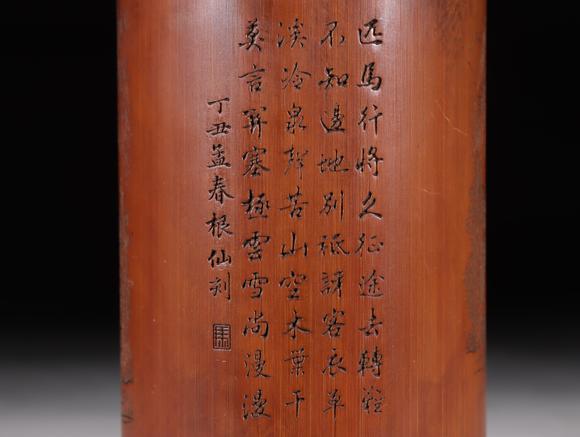 匹馬行將久征途去轉難
不知邊地別祗訝客衣單
溪冷泉聲苦山空木葉干
莫言關塞極雲雪尚漫漫
丁丑孟春根仙刻
馬